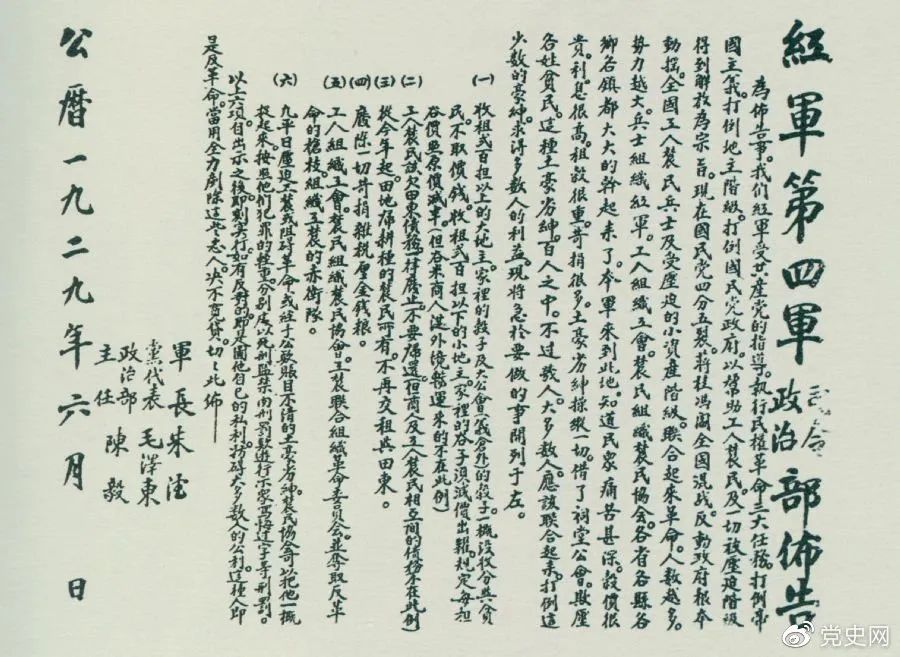 紅軍第四軍司令政治部佈告
為佈告事。我們紅軍受共產黨的指導。執行民權革命三大任務。打倒帝
國主義。打倒地主階級。打倒國民黨政府。以幫助工人農民。及一切被壓迫階級
得到解放為宗旨。現在國民黨四分五裂。蔣桂馮閻全國混战。反動政府根本
動搖。全國工人農民兵士及受壓迫的小資產階級。联合起來革命。人數越多。
勢力越大。兵士組織紅軍。工人組織工會。農民組織農民協会。各省各縣各
鄉各鎮都大大的幹起来了。本軍来到此地。知道民衆痛苦甚深。穀價很
貴。利息很高。租穀很重。苛捐很多。土豪劣紳操縱一切。借了祠堂公會。欺壓
各姓貧民。這種土豪劣紳。百人之中。不过数人。大多数人。應該联合起来。打倒這
少数的豪紳。求得多数人的利益。現將急於要做的事開列于左。
(一)收租弍百担以上的大地主。家裡的穀子及大公會(義倉外)的穀子。一概沒收分與貧
民。不取價钱。收租弍百担以下的小地主。家裡的谷子須減價出糶。規定每担
谷價照原價減半。(但谷米商人從外境辦運来的不在此例)
(二)工人農民該欠田東債務。一律廢止。不要歸還。(但商人及工人農民相互間的債務不在此例)
(三)從今年起。田地歸耕種的農民所有。不再交租與田東。
(四)廢除一切苛捐雜税厘金钱粮。
(五)工人組織工會。農民組織農民協會。工農联合組織革命委員会。並奪取反革
命的槍枝。組織工農的赤衛隊。
(六)凡平日壓迫工農。或阻碍革命。或經手公欵賬目不清的土豪劣紳。農民協會可以把他一概
捉起来。按照他们犯罪的輕重。分别處以死刑監禁肉刑罰款遊行示家寫悔过字等刑罰。
以上六項。自出示之後。即刻实行。如有反對的。即是圖他自己的私利。妨碍大多数人的公利。這種人即
是反革命。當用全力剷除這些惡人。决不寬贷。切切此佈
軍長朱德
黨代表毛澤東
政治部主任陳毅
公曆一九二九年六月 日
党史网